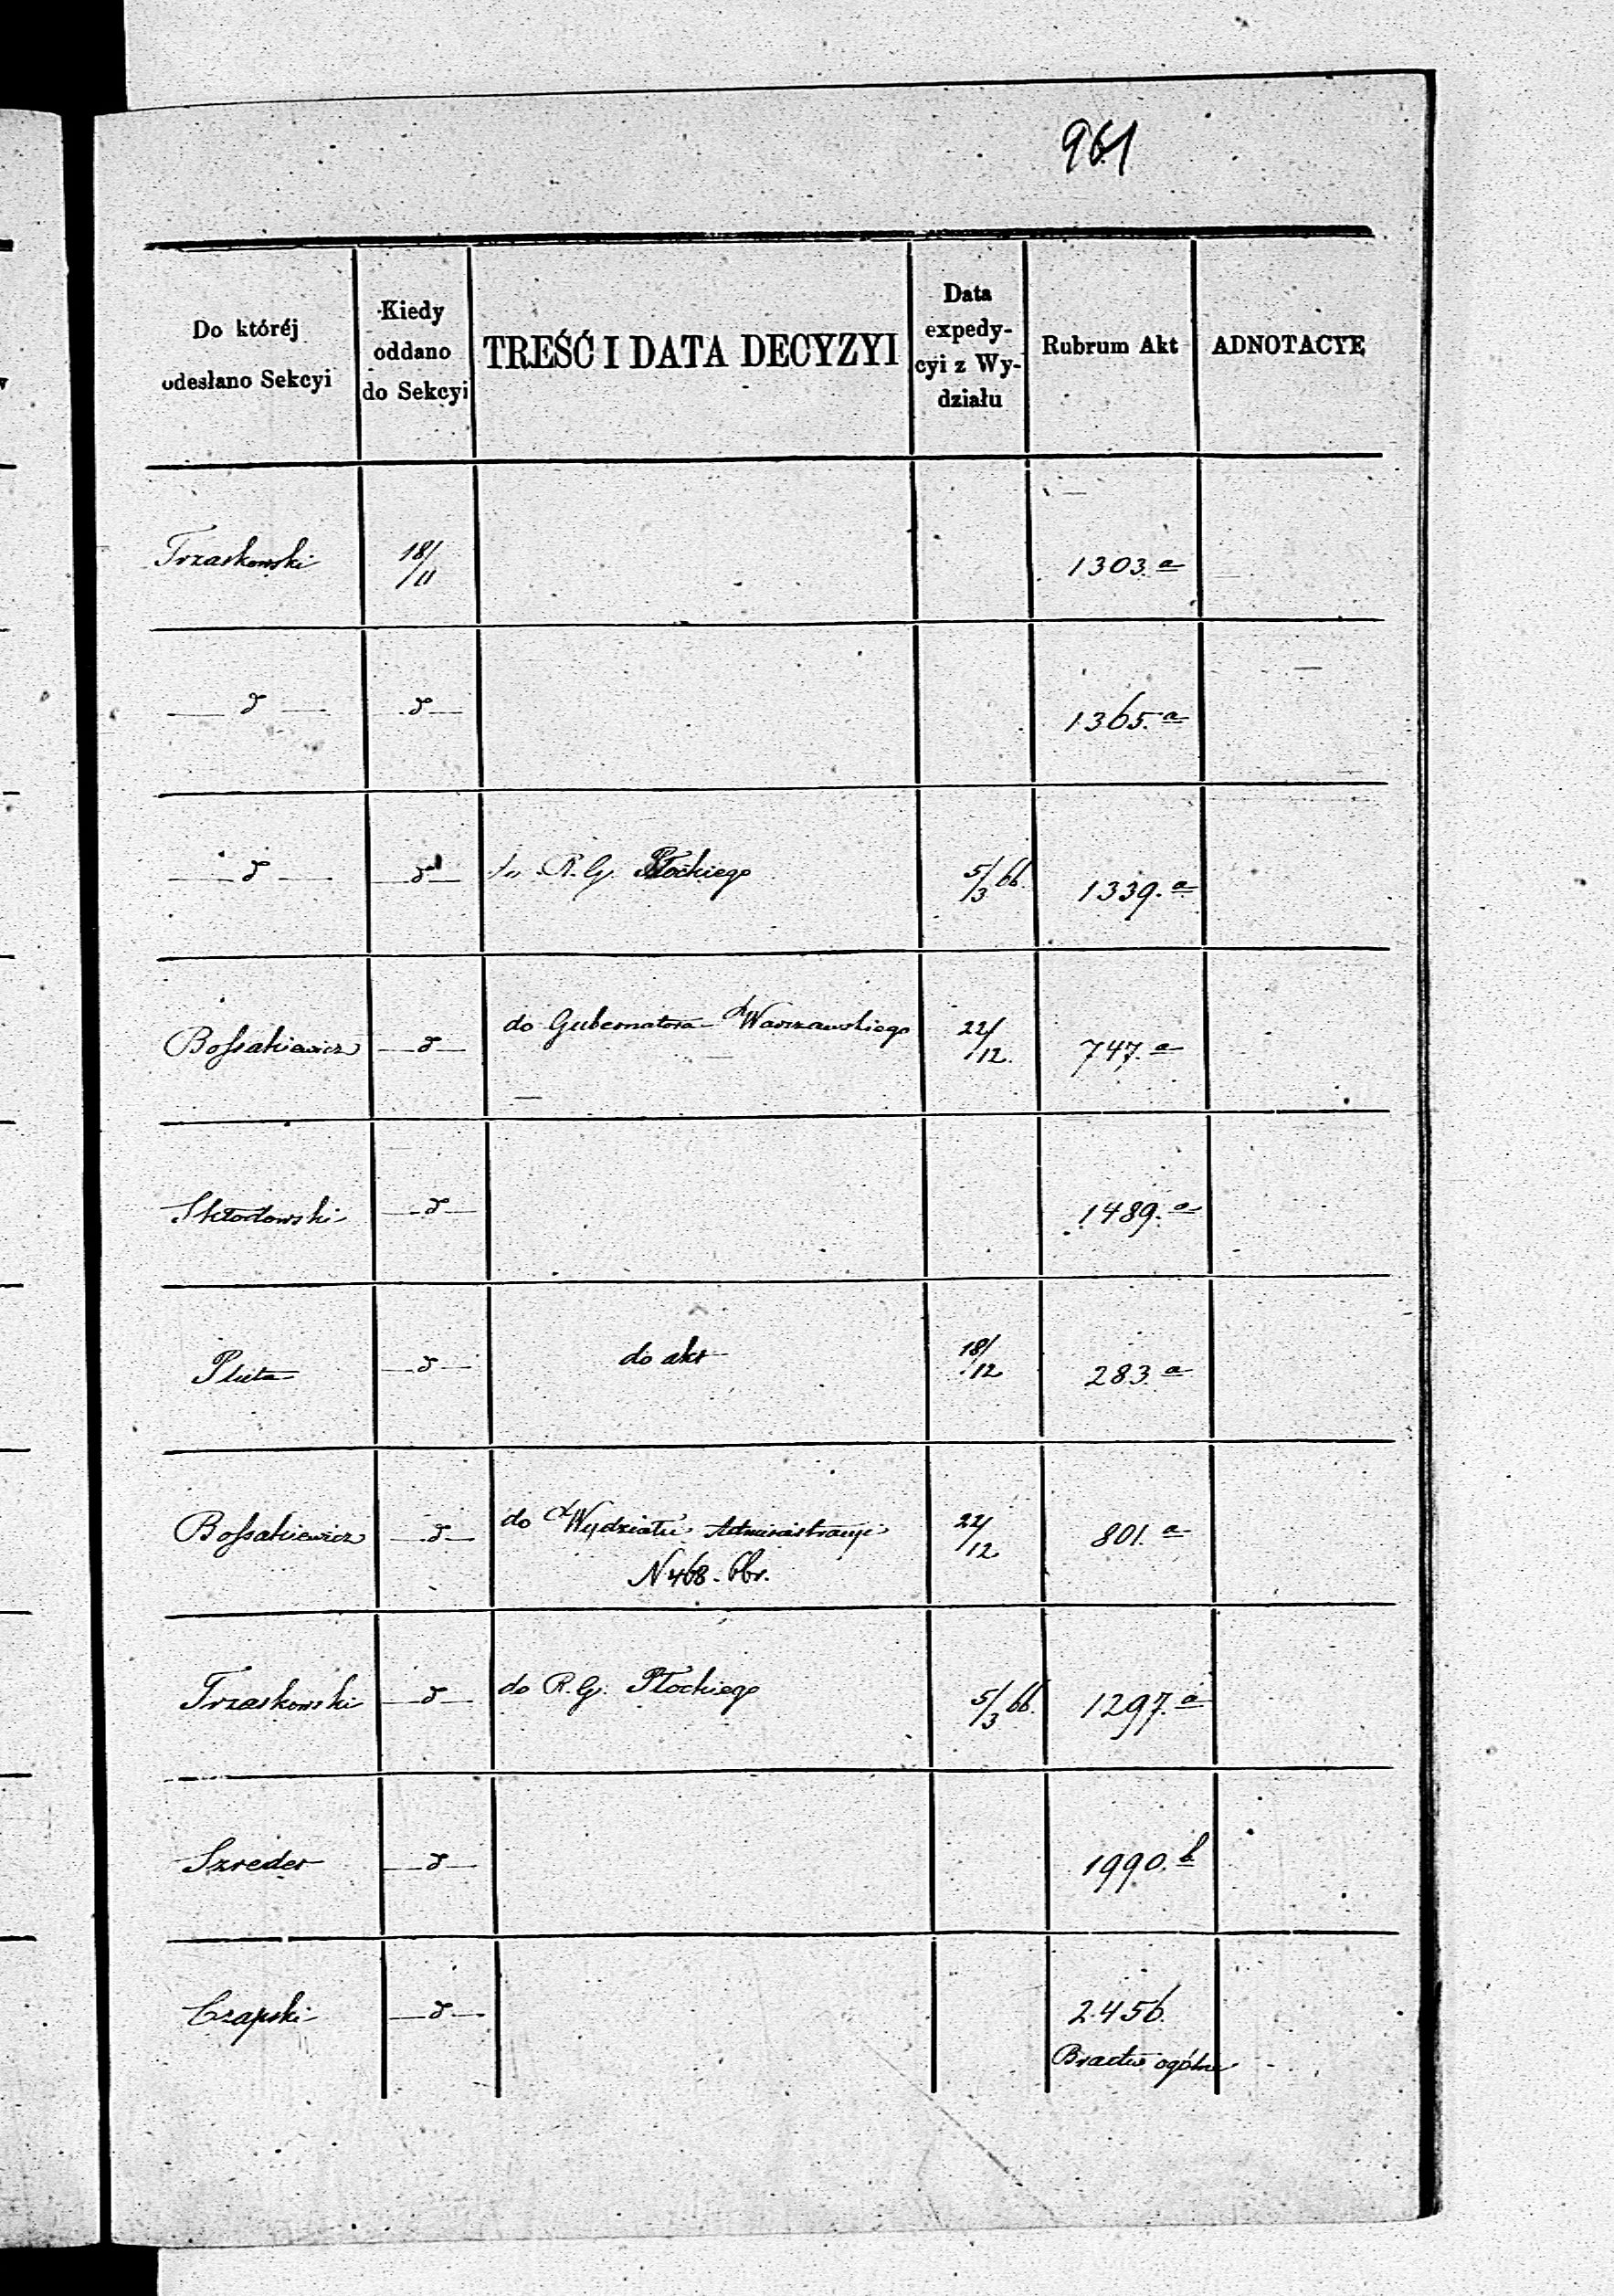 961
Do któréj odesłano Sekcyi
Kiedy oddano do Sekcyi
TREŚĆ I DATA DECYZYI
Data expedy-cyi z Wy-działu
Rubrum Akt
ADNOTACYE
Trzaskowski 18/11 1303.a
— d — d — 1365.a
— d — d — do R. G. Płockiego 5/3 66. 1339.a
Bossakiewicz — d — do Gubernatora Warszawskiego 22/12. 747.a
Skłodowski — d — 1489.a
Pluta — d — do akt 18/12 283.a
Bossakiewicz — d — do Wydziału Administracyi 22/12 801.a
N 468
Trzaskowski — d — do R. G. Płockiego 5/3 66. 1297.a
Szreder — d — 1990.b
Czapski — d — 2456.
Bractw ogólne